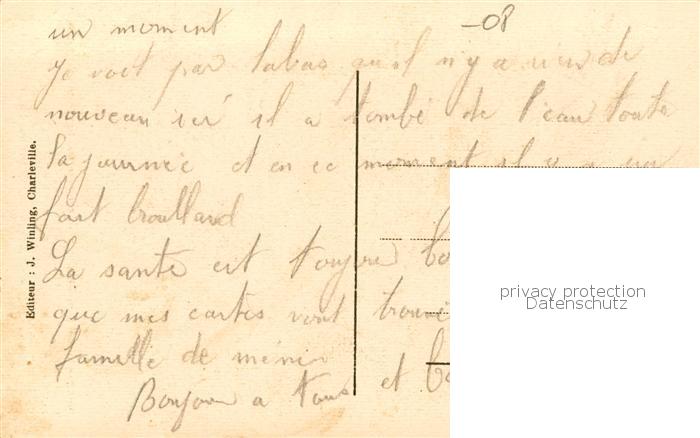 -08
un moment
je voit par labas qu'il n'y a rien de
nouveau ici il a tombé de l'eau toute
la journée et en ce moment il y a un
fort broulland
La santé est toujour
que mes cartes vont trouvé
famille de méni
Bonjour a tous et
Editeur : J. Winling, Charleville.
privacy protection
Datenschutz